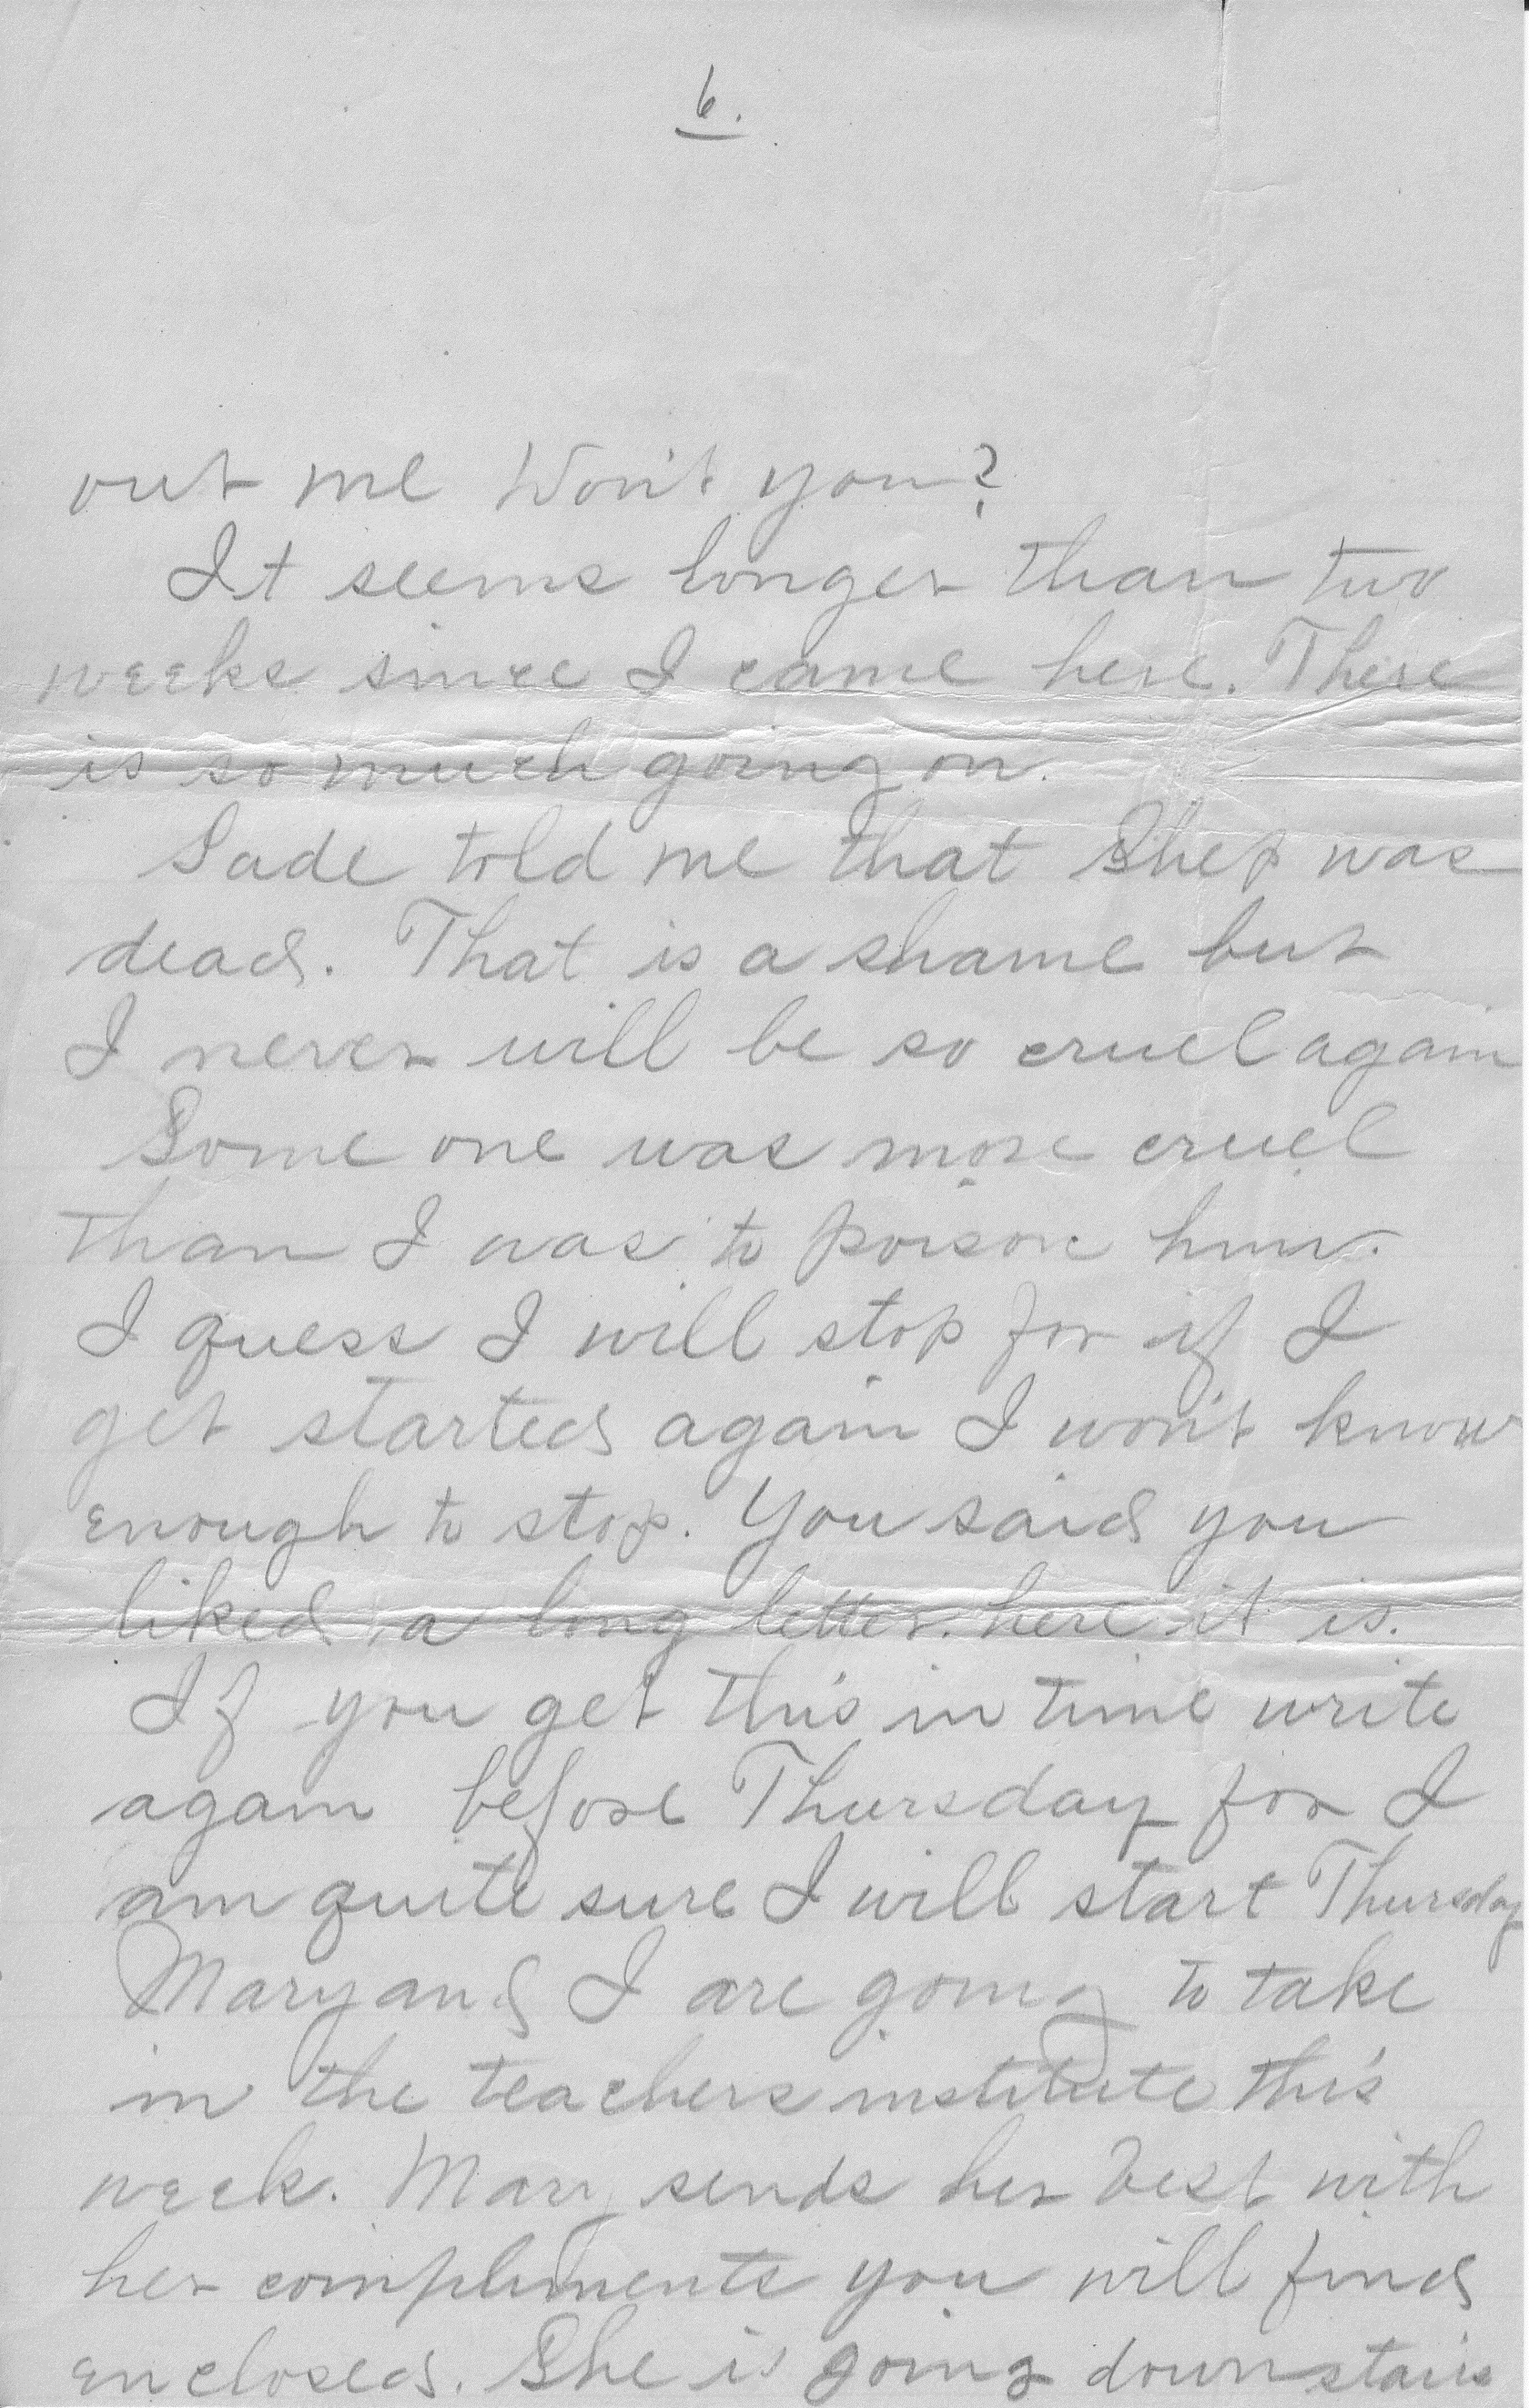 6.
out me Won't you?
It seems longer than two
weeks since I came here. There
is so much going on.
Sade told me that Shep was
dead. That is a shame but
I never will be so cruel again
Some one was more cruel
than I was to poison him.
I guess I will stop for if I
get started again I won't know
enough to stop. You said you
liked a long letter. here it is.
If you get this in time write
again before Thursday for I
am quite sure I will start Thursday
Mary and I are going to take
in the teachers institute this
week. Mary sends her best with
her compliments you will find
enclosed. She is going downstairs